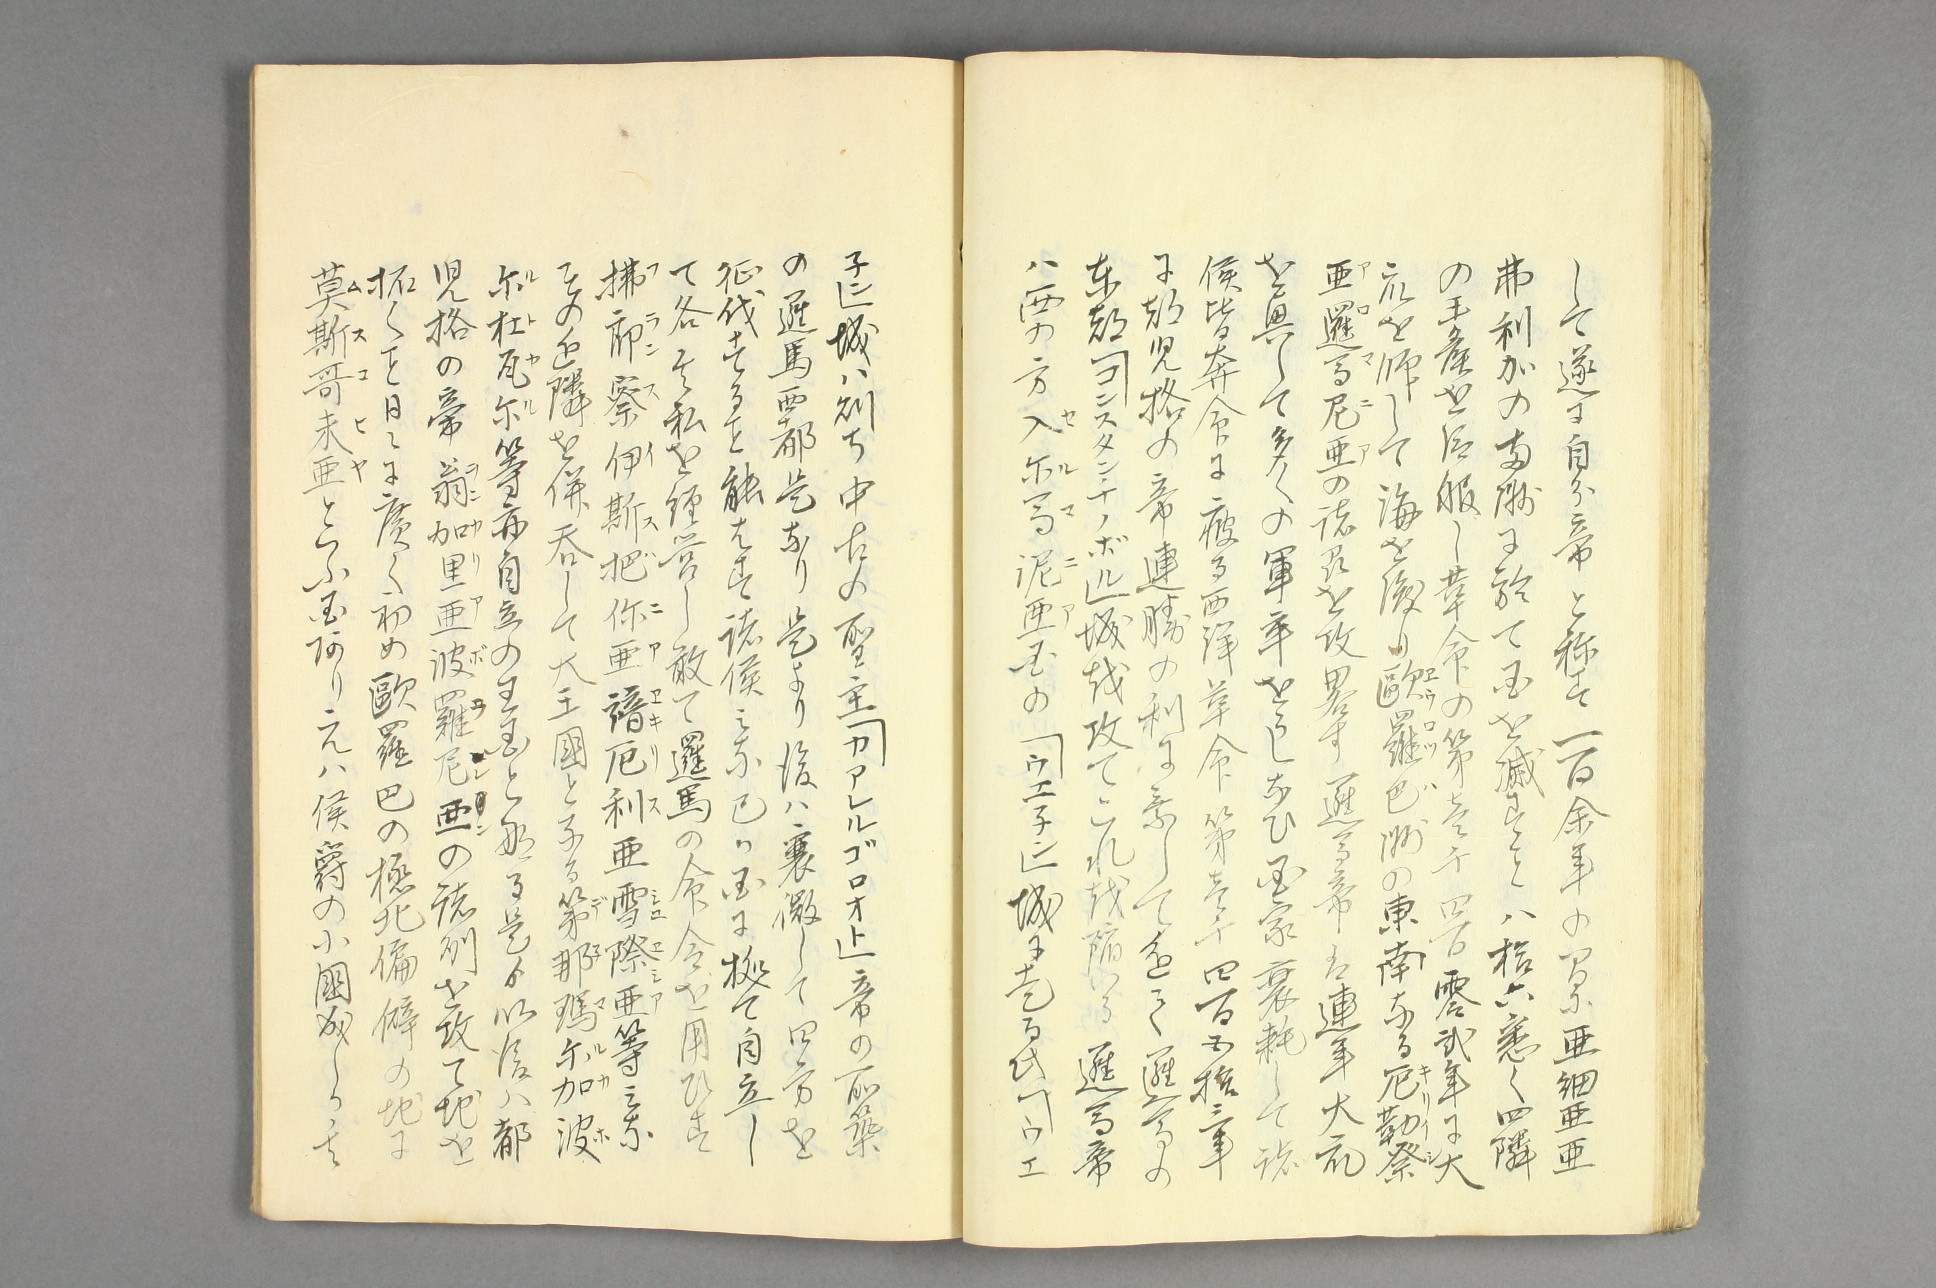 して遂に自分帝と称す一百余年の間亜細亜亜
弗利加の両洲に於て国を滅すこと八拾六悉く四隣
の王産を臣服し革命の第壱千四百零弐年に大
衆を師して海を渡り歐羅巴洲の東南なる厄勒祭
亜羅馬尼亜の諸邑を攻畧す邏馬帝も連年大兵
を興して多くの軍卒をうしなひ国家衰耗して諸
侯皆奔命に疲る西洋革命第壱千四百五拾三年
に都児格の帝連勝の利に乗して遂に邏馬の
東都「コンスタンチノボル」城を攻てこれを陥いる邏馬帝
ハ西の方入尓馬泥亜国の「ウエ子ン」城に走る此「ウエ
子ン」城ハ則ち中古の聖主「カアレルゴロオト」帝の所築
の邏馬西都是なり是より後ハ衰微して四方を
征伐することを能はす諸侯ミな己か国に拠て自立し
て各其私を經営し敢て邏馬の命令を用ひす
拂郎察伊斯把你亜諳厄利亜雪際亜等ミな
その近隣を併呑して大王國となる第那瑪尓加波
尓杜瓦尓等亦自立の王国と成る是より以後ハ都
児格の帝翁加里亜波羅尼亜の諸州を攻て地を
拓くこと日々に廣く初め歐羅巴の極北偏僻の地に
莫斯哥未亜といふ国阿り元ハ侯爵の小國成しか其